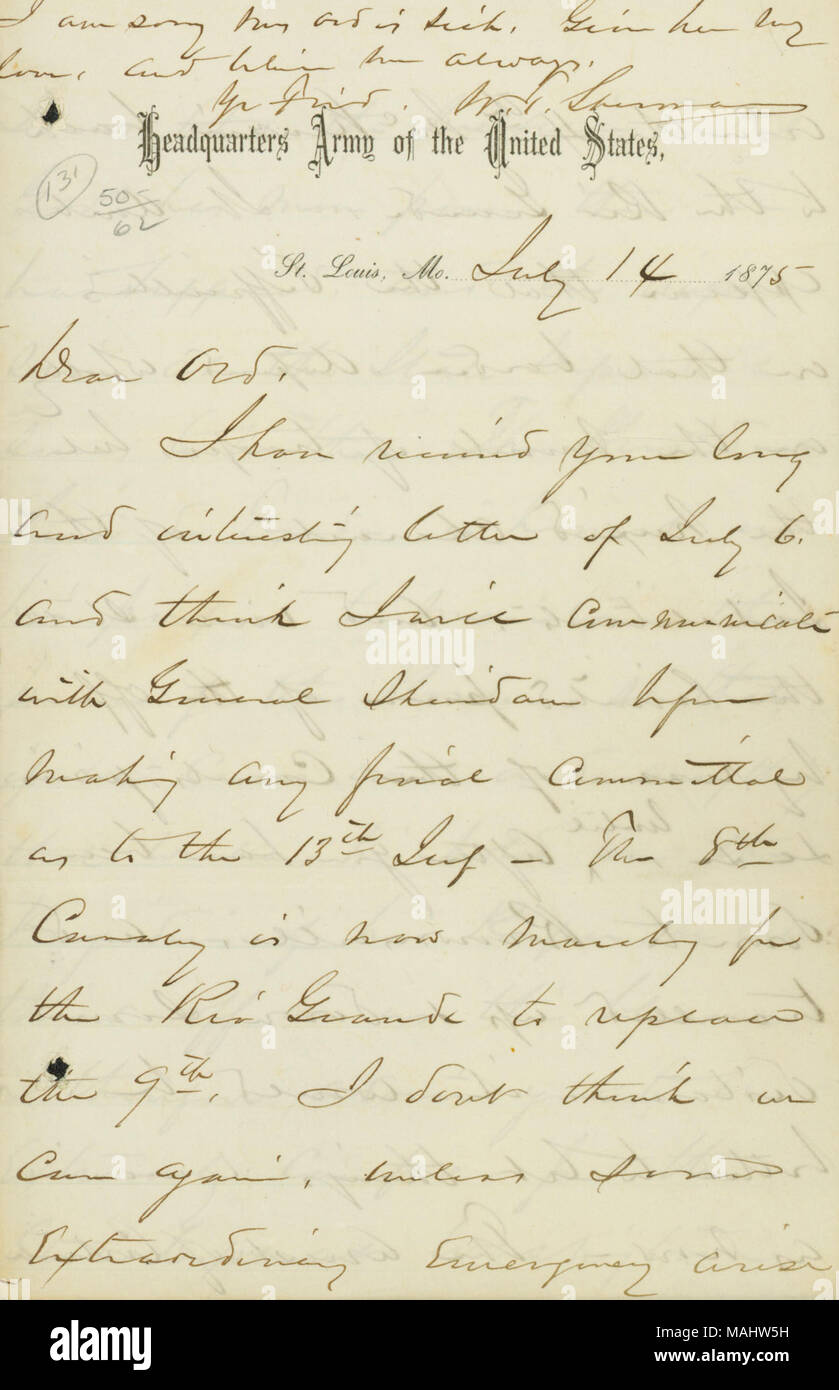 I am sorry Mrs Ord is sick. Give her my
love, and believe me always.
Yr Friend. W. T. Sherman
Headquarters Army of the United States,
131
50
62
St. Louis, Mo. July 14 1875
Dear Ord.
I have received your long
and interesting letter of July 6.
and think I will communicate
with General Sheridan before
making any final committal
as to the 13th Inf - The 8th
Cavalry is now marching for
the Rio Grande to replace
the 9th. I dont think we
can again, unless some
Extraordinary Emergency arise
a alamy stock photo
alamy
Image ID: MAHW5H
www.alamy.com